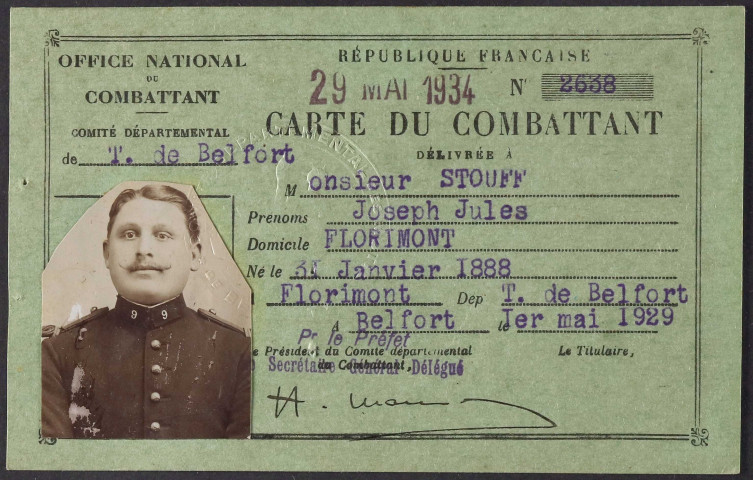 OFFICE NATIONAL
DU
COMBATTANT
COMITÉ DÉPARTEMENTAL
de T. de Belfort
RÉPUBLIQUE FRANÇAISE
29 MAI 1934 N° 2638
CARTE DU COMBATTANT
DÉLIVRÉE A
Monsieur STOUFF
Prénoms Joseph Jules
Domicile FLORIMONT
Né le 31 Janvier 1888
Florimont Dep T. de Belfort
A Belfort le Ier mai 1929
Pr le Préfet
e Président du Comité départemental
du Combattant,
Secrétaire Général Délégué
Le Titulaire,
9 9